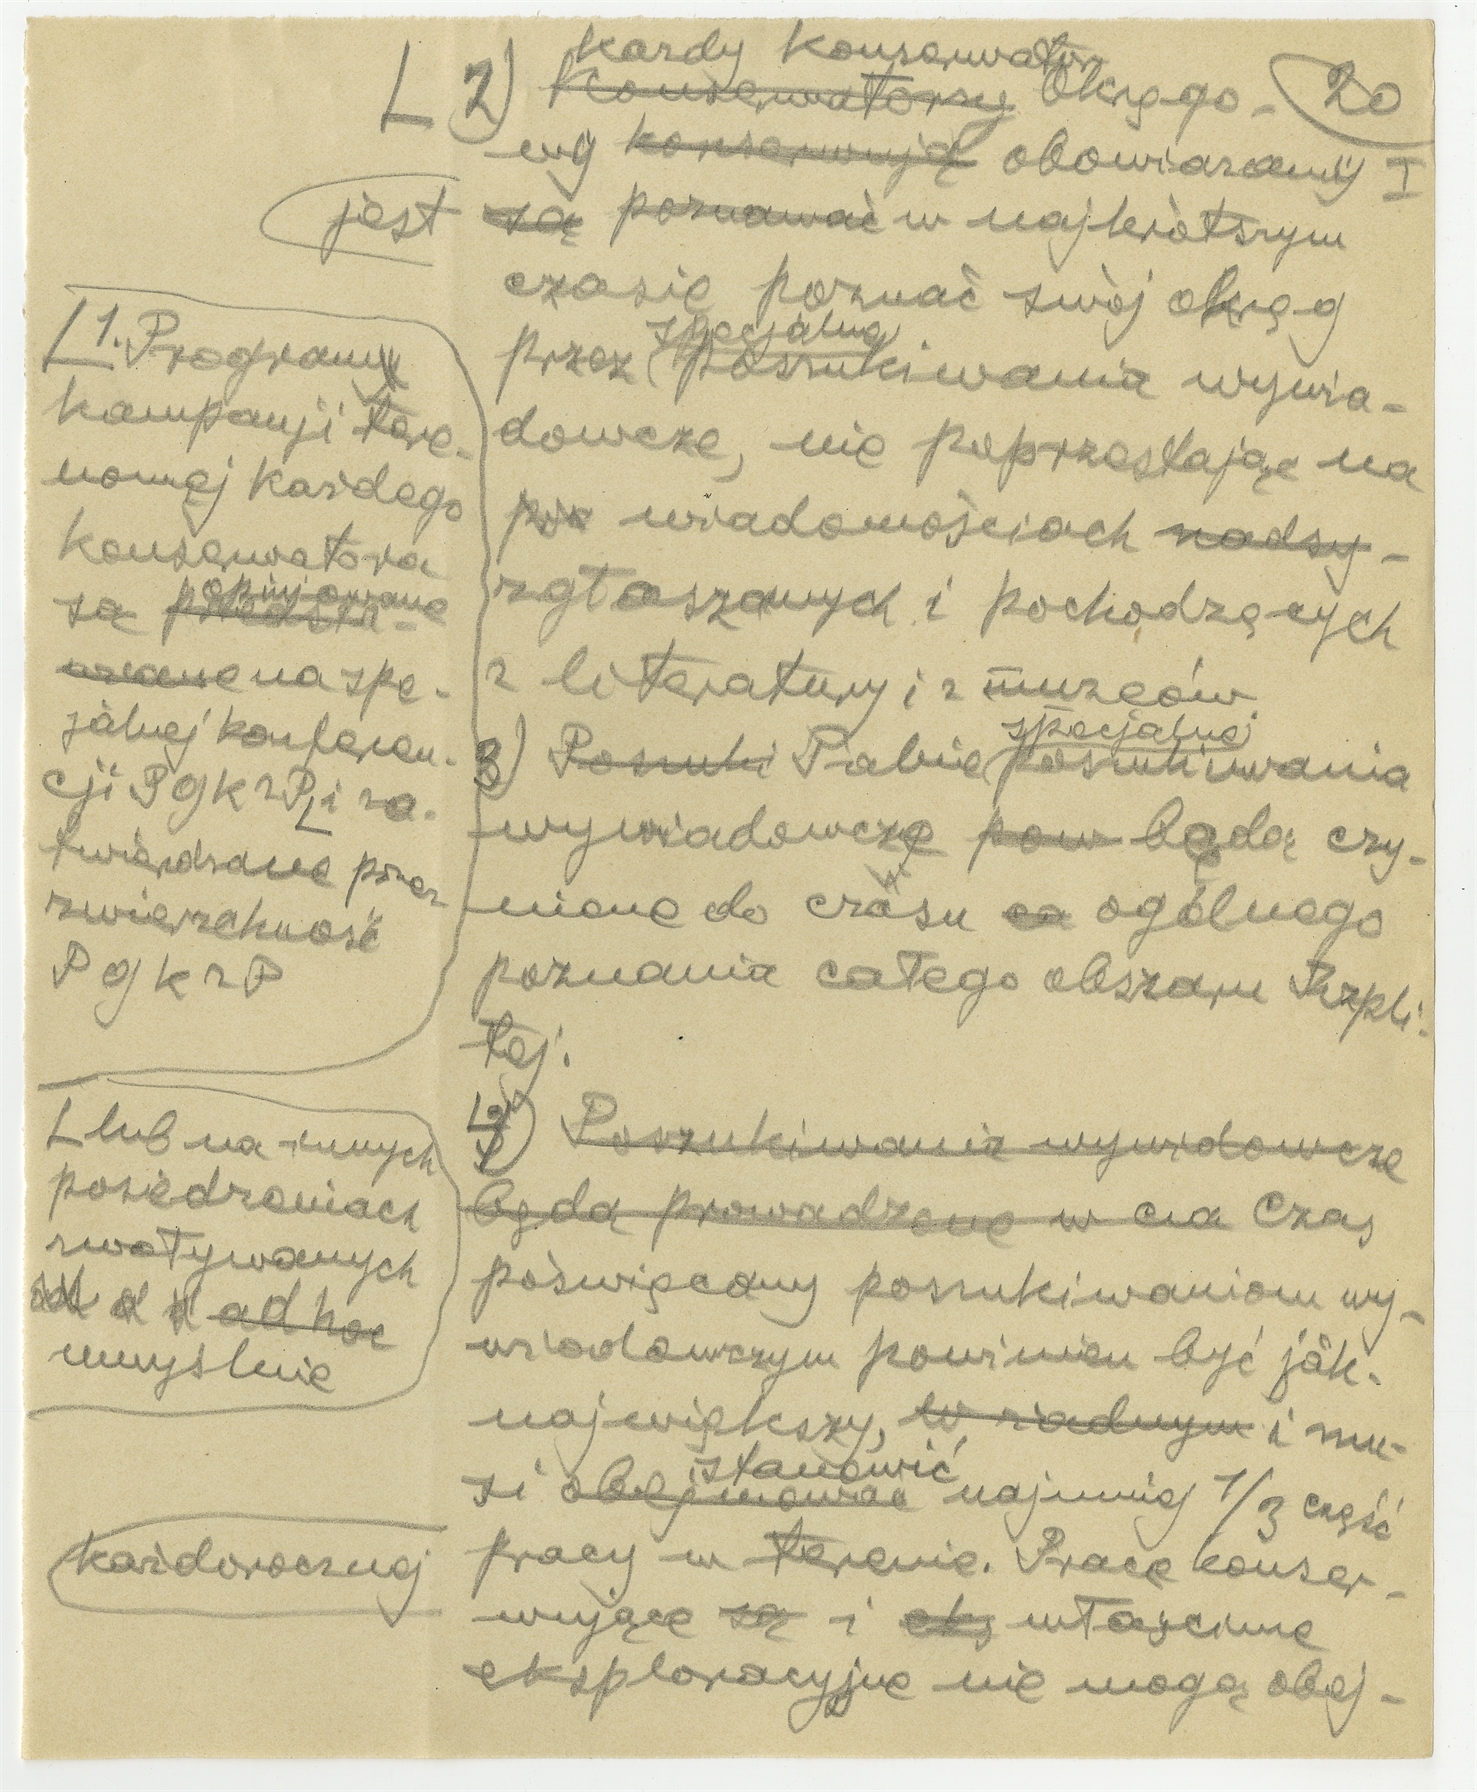 każdy konserwator
⌊ 2) Konserwatorzy Okręgo- 20
wy konserwują obowiązany I
jest są poznawać w najkrótszym
czasie poznać swój okręg
specjalne
przez poszukiwania wywia-
dowcze, nie poprzestając na
wiadomościach nadsy-
zgłaszanych i pochodzących
z literatury i z muzeów.
specjalne
3) Poszuki Takie poszukiwania
wywiadowcze pow będą czy-
nione do czasu ca ogólnego
poznania całego obszaru Rzpli-
tej.
4) Poszukiwania wywidowcze
będą prowadzone w cia Czas
poświęcony poszukiwaniom wy-
wiadowczym powinien być jak-
największy, w żadnym i mu-
stanowić
si obejmować najmniej 1/3 część
pracy w terenie. Prace konser-
wujące są i eks właściwe
eksploracyjne nie mogą obej-
⌊1. Programy
kampanji tere-
nowej każdego
konserwatora
opinjowane
są przedsta-
wiane na spe-
jalnej konferen-
cji PGKZP ⌊ i za-
twierdzane przez
zwierzchność
PGKZP
⌊ lub na innych
posiedzeniach
zwoływanych
ad hoc
umyślnie
każdorocznej